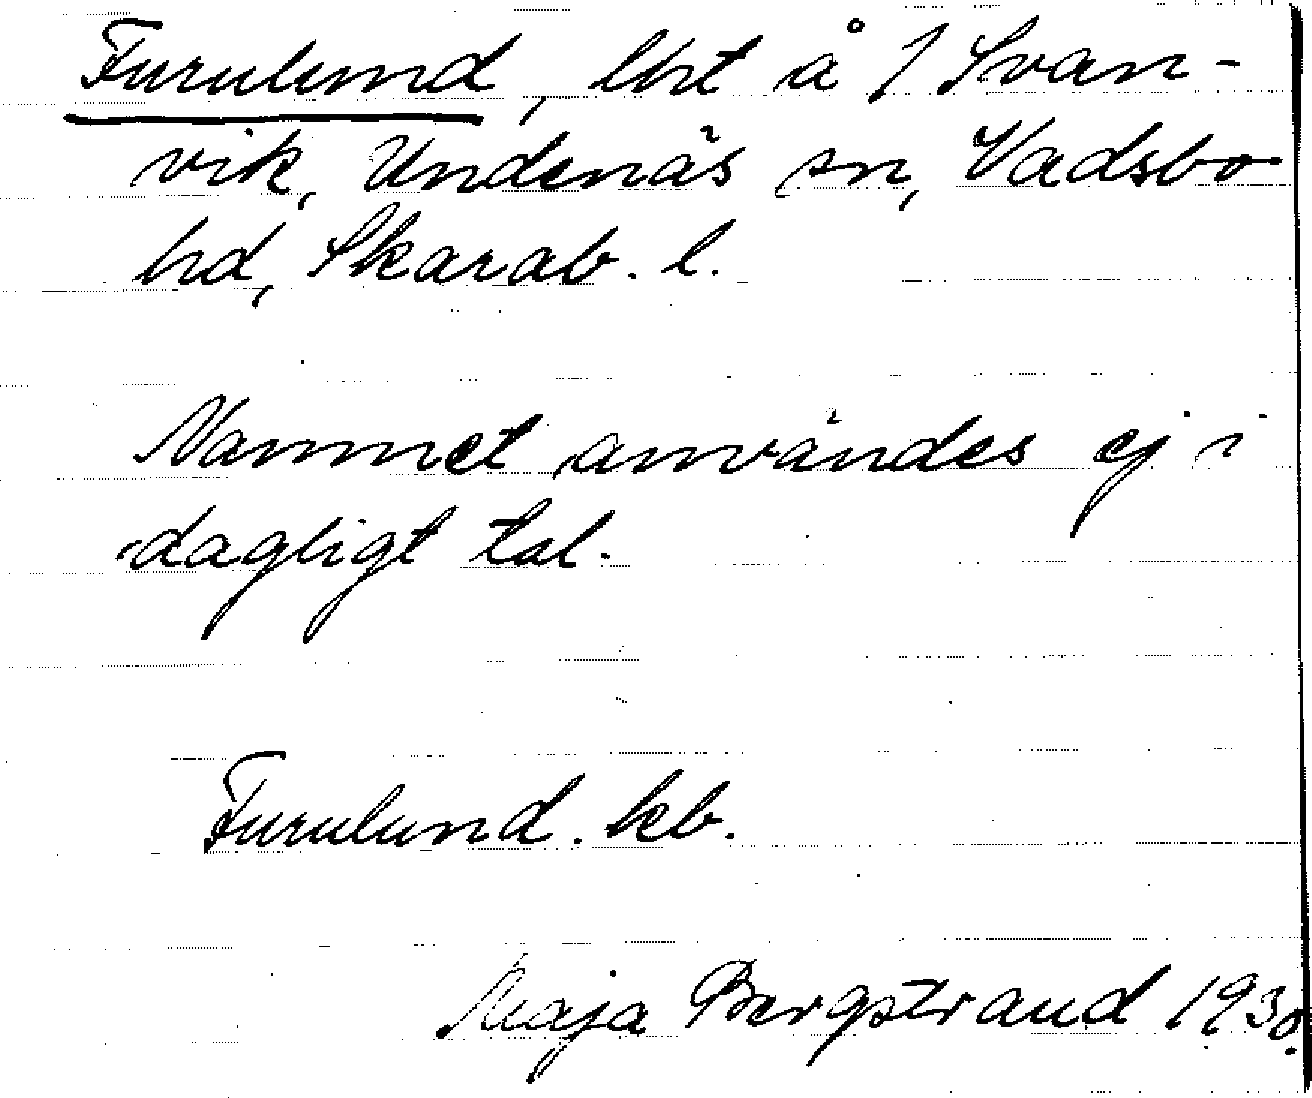 Furulund, lht å 1 Svan-
vik, Undenäs sn, Vadsbo
hd, Skarab. l.
Namnet användes ej i
dagligt tal.
Furulund. kb.
Maja Bergstrand 1930.